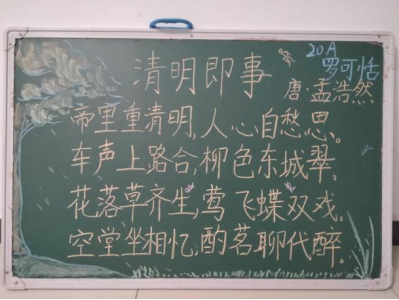 清明即事
20A
罗可恬
唐·孟浩然
帝里重清明,人心自愁思。
车声上路合,柳色东城翠。
花落草齐生,莺飞蝶双戏。
空堂坐相忆,酌茗聊代醉。